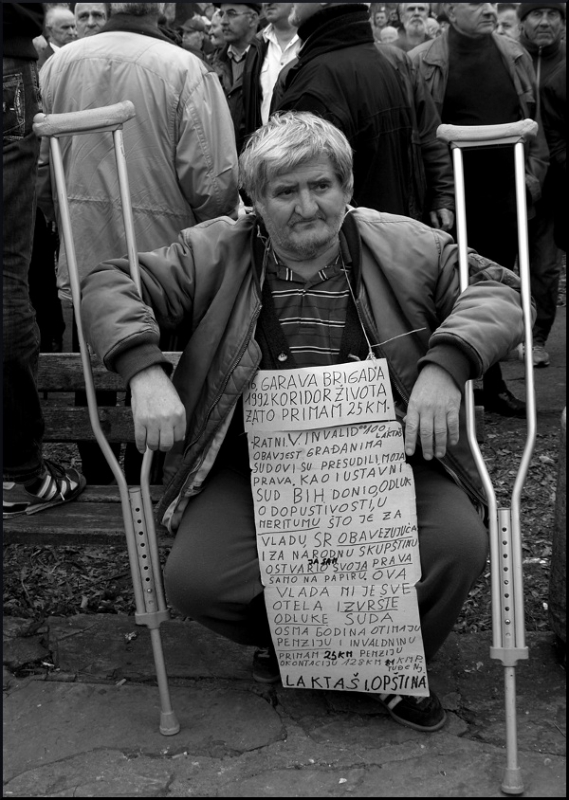 16. GARAVA BRIGADA
1992 KORIDOR ŽIVOTA
ZATO PRIMAM 25 KM.
RATNI V INVALID 100 LAKTAŠ
OBAVJEST GRAĐANIMA
SUDOVI SU PRESUDILI, MOJA
PRAVA, KAO I USTAVNI
SUD BIH DONIO, ODLUK
O DOPUSTIVOSTI, U
MERITUMU ŠTO JE ZA
VLADU, SR OBAVEZUJUĆA
I ZA NARODNU SKUPŠTINU
JA SAM
OSTVARIO SVOJA PRAVA
SAMO NA PAPIRU, OVA
VLADA MI JE SVE
OTELA IZVRŠTE
ODLUKE SUDA
OSMA GODINA OTIMAJU
PENZIJU I INVALDNINU
PRIMAM 25KM PENZIJU
OKONTACIJU 128KM
LAKTAŠI, OPŠTINA